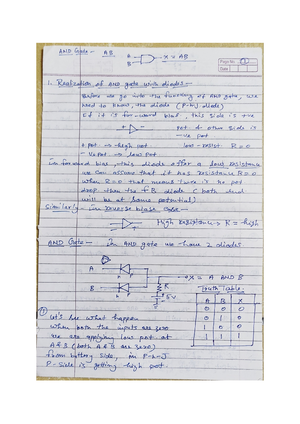 AND Gate - AB
A
B
X = AB
Page No.
Date
1. Realization of AND gate with diodes -
Before we go into the functing of AND gate, we
need to know, the diode (P-n-J diode)
If it is for-ward bias, this side is +ve
pot & other side is
-ve pot
+ pot → high pot
- ve pot → Low pot
less - resist R = 0
In forward bias, this diode offer a low resistance
we can assume that it has resistance R = 0
when R = 0 that means there is no pot
drop then the F.B diode (both end
will be at same potential)
Similarly - In reverse bias case -
High resistance → R = high
AND Gate - In AND gate we have 2 diodes
A
B
X = A AND B
R
5v
Truth Table
A B X
0 0 0
0 1 0
1 0 0
1 1 1
① Let's see what happen
when both the inputs are zero
we are applying low pot at
A & B (both A & B are zero)
from battery side, in P-n-J
P-side is getting high pot.